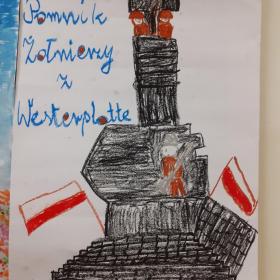 Pomnik
Żołnierzy
z
Westerplatte